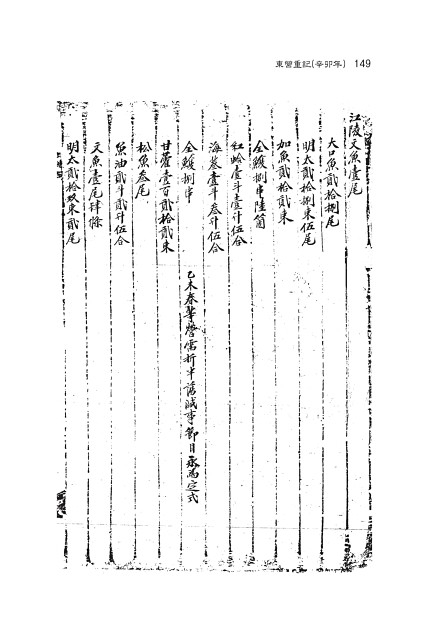 東營重記(辛卯年) 149
江陵文魚壹尾
大口魚貳拾捌尾
明太貳拾捌束伍尾
加魚貳拾貳束
全鰒捌串陸箇
紅蛤壹斗壹升伍合
海蔘壹斗叁升伍合
全鰒捌串 乙未春華營需折半蕩減事節目承
甘藿壹百貳拾貳束
松魚叁尾
魚油貳斗貳升伍合
文魚壹尾肆條
明太貳拾玖束貳尾